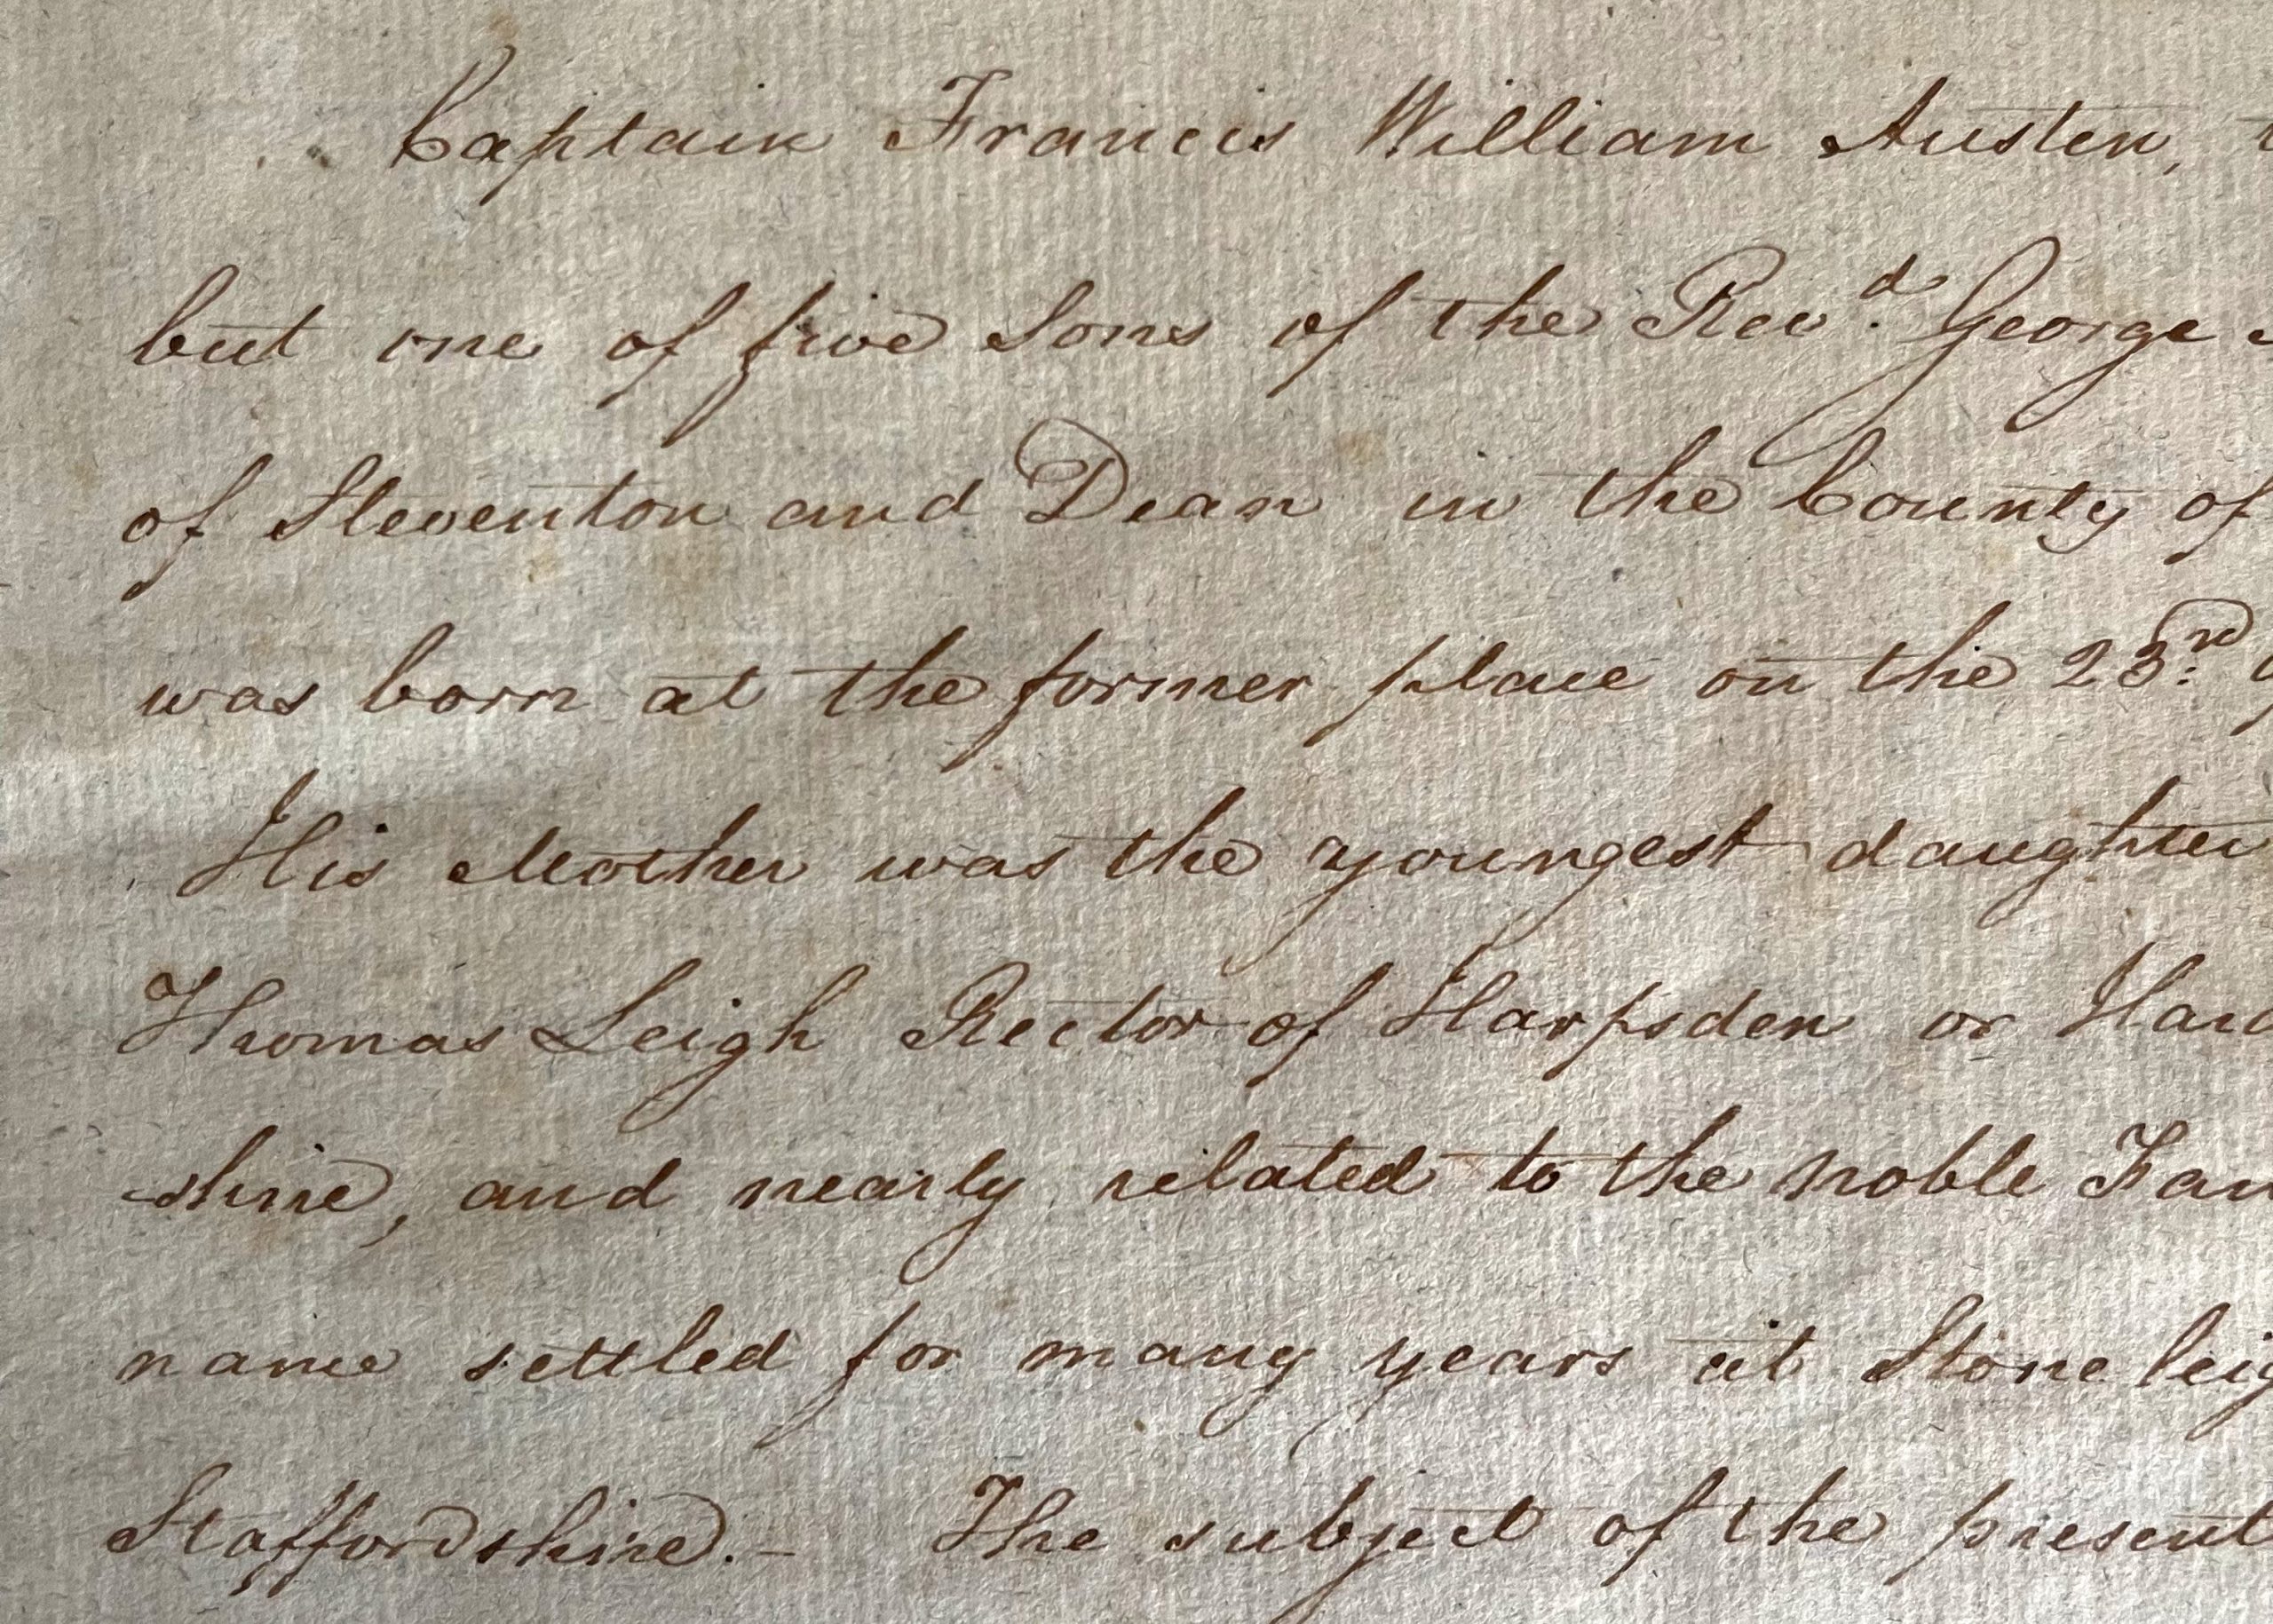 Captain Francis William Austen,
but one of five Sons of the Rev.d George
of Steventon and Dean in the County of
was born at the former place on the 23.rd
His Mother was the youngest daughter
Thomas Leigh Rector of Harpsden or
-shire, and nearly related to the noble
name settled for many years at Stoneleig
Staffordshire.- The subject of the present